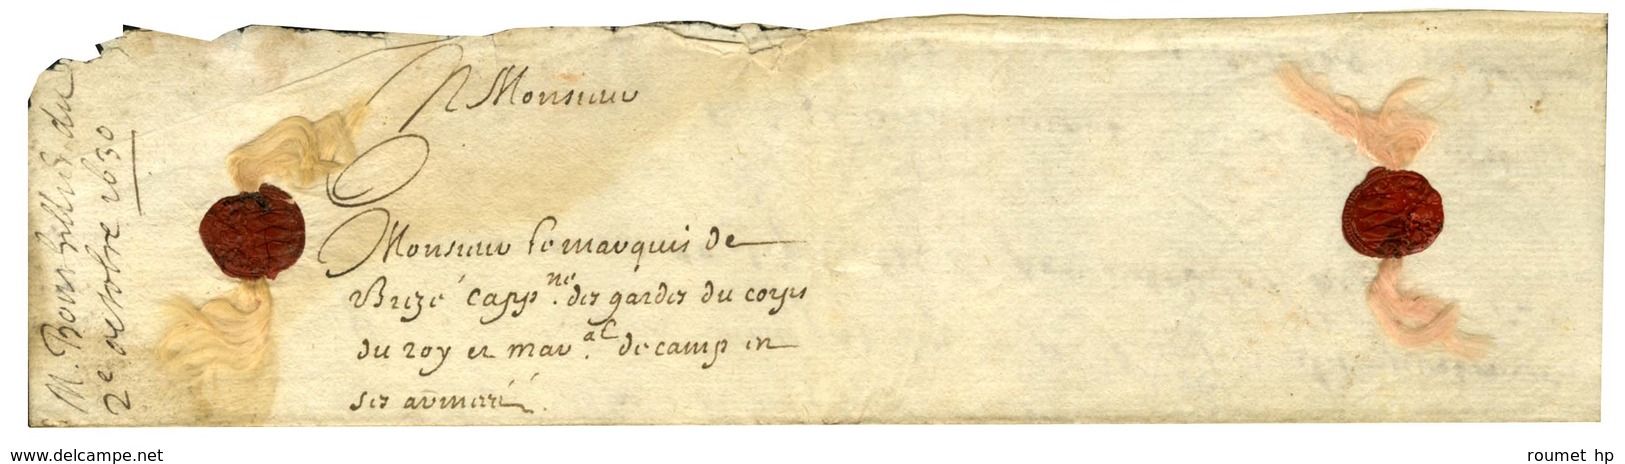 A Monsieur
Monsieur le marquis de
Brezé cappne. des gardes du corps
du roy et mar.al de camp en
ses armeés.
M. Bouthillier du
2e octobre 1630
www.delcampe.net
roumet hp